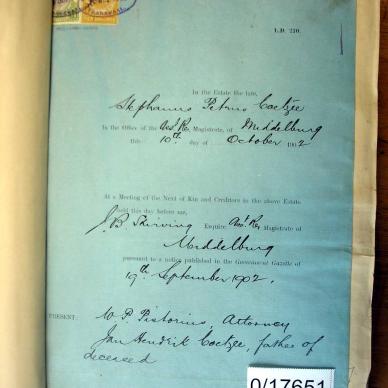 L.D. 220.
In the Estate the late,
Stephanus Petrus Coetzee
In the Office of the Asst. R. Magistrate, of Middelburg
this 10th day of October 1902
At a Meeting of the Next of Kin and Creditors in the above Estate
held this day before me,
J. B. Skirving Esquire Asst. R. Magistrate of
Middelburg
pursuant to a notice published in the Government Gazette of
19th September 1902.
PRESENT: W. P. Pistorius, Attorney
Jan Hendrik Coetzee, father of
deceased
0/17651